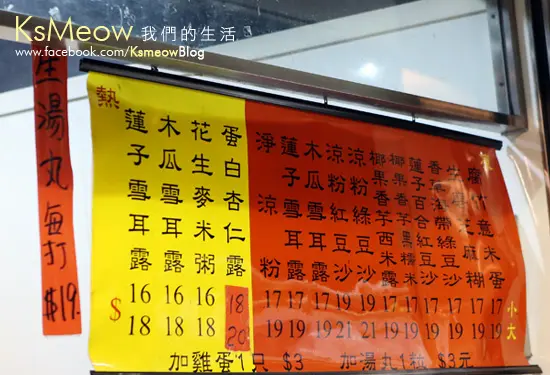 KsMeow 我們的生活
www.facebook.com/KsmeowBlog
生湯丸每打 $19.
熱
蓮子雪耳露
木瓜雪耳露
花生麥米粥
蛋白杏仁露
$ 16 16 16 18
18 18 18 20
淨涼粉
蓮子雪耳露
木瓜雪耳露
涼粉紅豆沙
涼粉綠豆沙
椰果香芋西米露
椰果香芋黑糯米
蓮子百合紅豆沙
香海帶綠豆沙
芝麻糊
腐竹意米蛋
17 17 17 19 19 17 17 17 17 17 17 小
19 19 19 21 21 19 19 19 19 19 19 大
加雞蛋1只 $3 加湯丸1粒 $3元